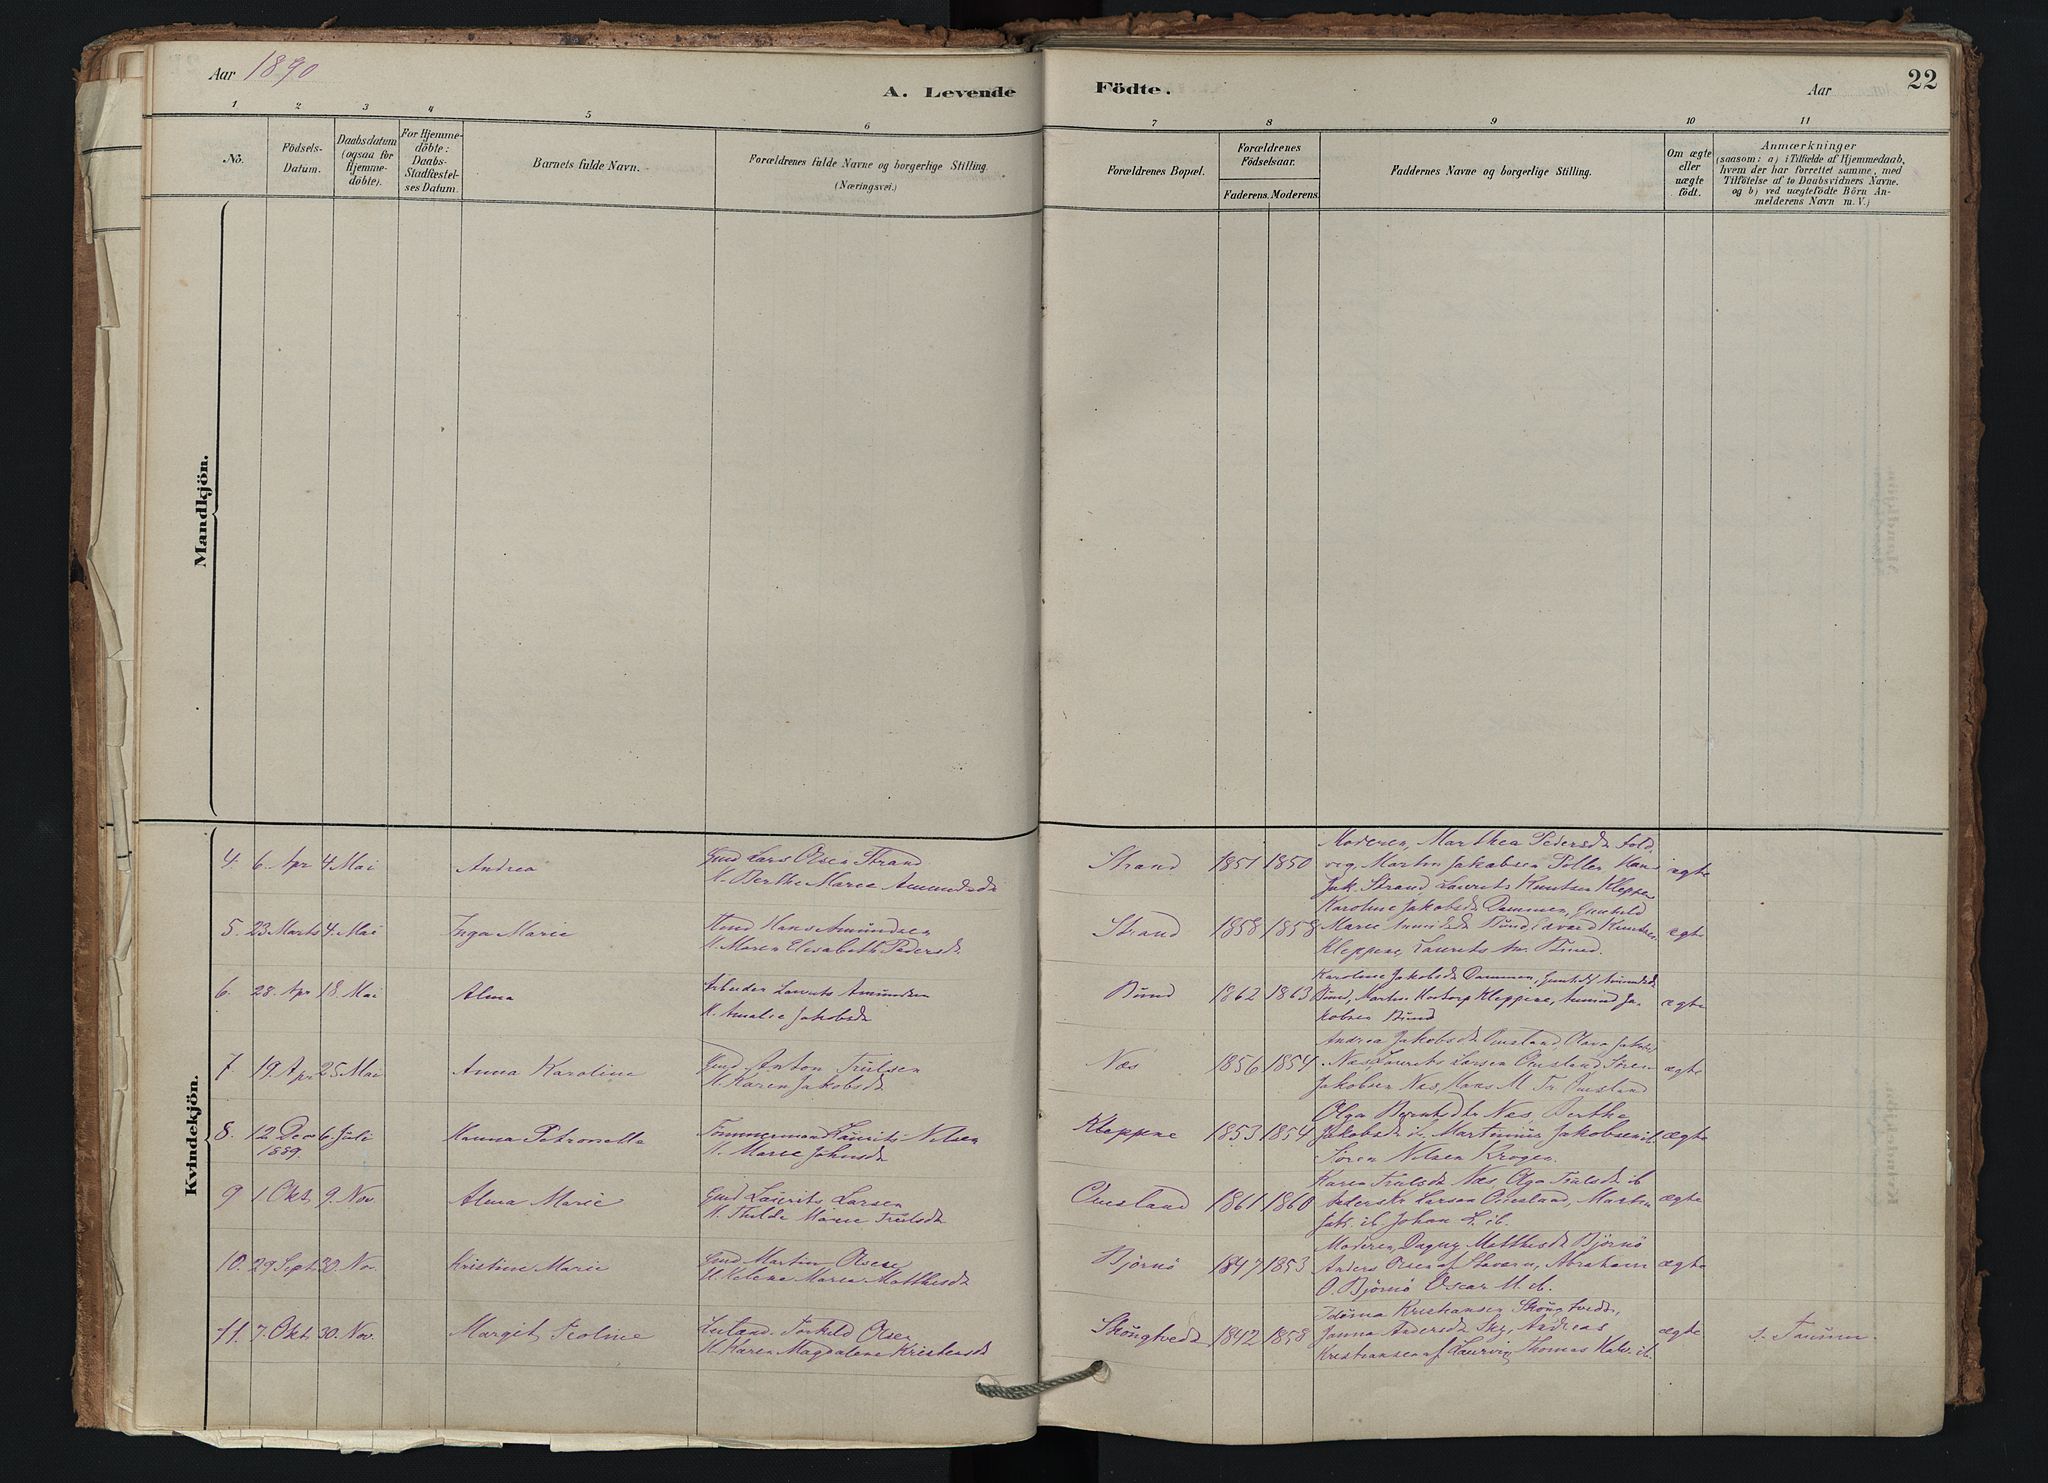 Aar 1890
A. Levende
Födte.
Aar
22
1 2 3 4 5 6 7 8 9 10 11
No.
Födsels-
Datum.
Daabsdatum
(ogsaa for
Hjemme-
döbte).
For Hjemme-
döbte:
Daabs-
Stadfæstel-
ses Datum.
Barnets fulde Navn.
Forældrenes fulde Navne og borgerlige Stilling.
(Næringsvei.)
Forældrenes Bopæl.
Forældrenes
Födselsaar.
Faderens. Moderens.
Faddernes Navne og borgerlige Stilling.
Om ægte
eller
uægte
födt.
Anmærkninger
(saasom: a) i Tilfælde af Hjemmedaab,
hvem der har forrettet samme, med
Tilföielse af to Daabsvidners Navne,
og b) ved uægtefödte Börn An-
melderens Navn m. V.)
Mandkjön.
Kvindekjön.
4. 6. Apr 4 Mai Andrea
Gmd Lars Olsen Strand
H. Berthe Marie Amundsdr
Strand 1851 1850
Moderen, Marthea Pedersdr
Martin Jakobsen Hans
Jak. Strand Laurits Knutsen Kleppen
ægte
5. 23 Marts 4. Mai Inga Marie
Hans Amundsen
H. Maren Elisabeth Pedersdr
Strand 1858 1858
Karoline Jakobsdr Dammen, Gunhild
Marie Edvard Knutsen
Kleppene, Laurits Am.
ægte
6. 28. Apr 18 Mai Alma
Arbeider Laurits Amundsen
H. Amalie Jakobsdr
Bünd 1862 1863
Karoline Jakobsdr Dammen,
Bünd, Martin Kleppene, Amund Ja-
kobsen Bünd
ægte
7 19. Apr 25 Mai Anna Karoline
Gmd Anton Trulsen
H. Karen Jakobsdr
Næs 1856 1854
Andrea Jakobsdr Omsland Olava
Næs, Laurits Larsen Omsland Sören
Jakobsen Næs, Hans M. Tr. Omsland
ægte
8. 12 Dec 6. Juli Hanna Petronelle
1889.
Tömmermand Laurits Nilsen
H. Marie Johnsdr
Kleppene 1853 1854
Olga Berntsdtr Næs, Berthe
Jakobsdr ib. Martinius Jakobsen ib
Sören Nilsen Krogen.
ægte
9 1. Okt. 9. Nov. Alma Marie
Gmd Laurits Larsen
H. Thilde Marie Trulsdr
Omsland 1861 1860
Karen Trulsdr Næs, Olga Trulsdr ib
Anders Larsen Omsland, Martin
Jak. ib. Johan L. ib.
ægte
10. 29 Sept. 30. Nov. Kristine Marie
Gmd Martin Olsen
H. Helene Maria Matthisdr
Bjørnø 1847 1853
Moderen, Dagny Matthisdr Bjørnø
Anders Olsen af Stavern, Abraham
O. Bjørnø Oscar M. ib.
ægte
11. 7. Okt. 30. Nov. Margit Teoline
Torkild Olsen
H. Karen Magdalene Kristensdr
Skougtvedt 1842 1858
Kristiansen Skougtvedt,
Janna Andersdr Sky, Andreas
Kristiansen af Laurvig, Thomas ib.
ægte